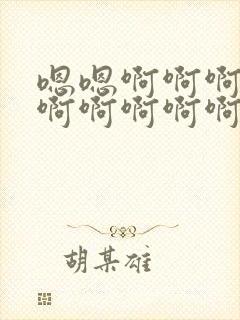 嗯嗯啊啊啊
啊啊啊啊啊
胡某雄